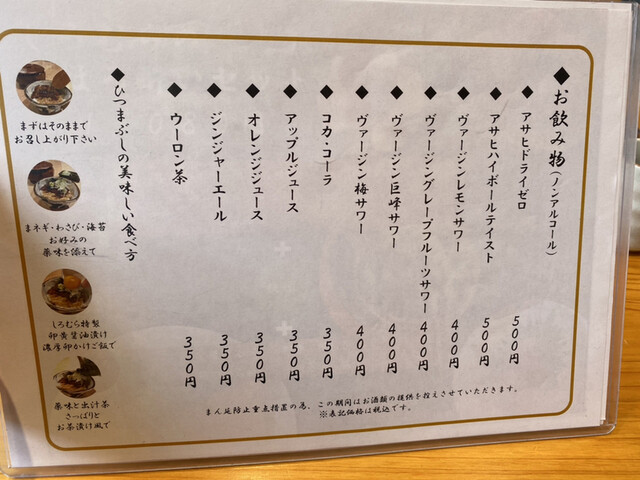 ◆お飲み物(ノンアルコール)
アサヒドライゼロ 500円
◆アサヒハイボールテイスト 500円
◆ヴァージンレモンサワー 400円
◆ヴァージングレープフルーツサワー 400円
◆ヴァージン巨峰サワー 400円
◆ヴァージン梅サワー 400円
◆コカ・コーラ 350円
◆アップルジュース 350円
◆オレンジジュース 350円
◆ジンジャーエール 350円
◆ウーロン茶 350円
まん延防止重点措置の為、この期間はお酒類の提供を控えさせていただきます。
※表記価格は税込です。
◆ひつまぶしの美味しい食べ方
まずはそのままで
お召し上がり下さい
まネギ・わさび・海苔
お好みの
薬味を添えて
しろむら特製
卵黄醤油漬け
濃厚卵かけご飯で
薬味と出汁茶
さっぱりと
お茶漬け風で